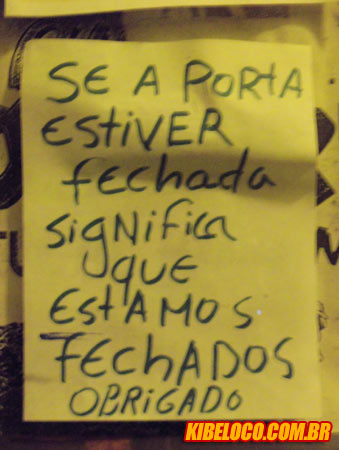 SE A PORTA
ESTIVER
fechada
SIGNIFICA
QUE
ESTAMOS
FECHADOS
OBRIGADO
KIBELOCO.COM.BR